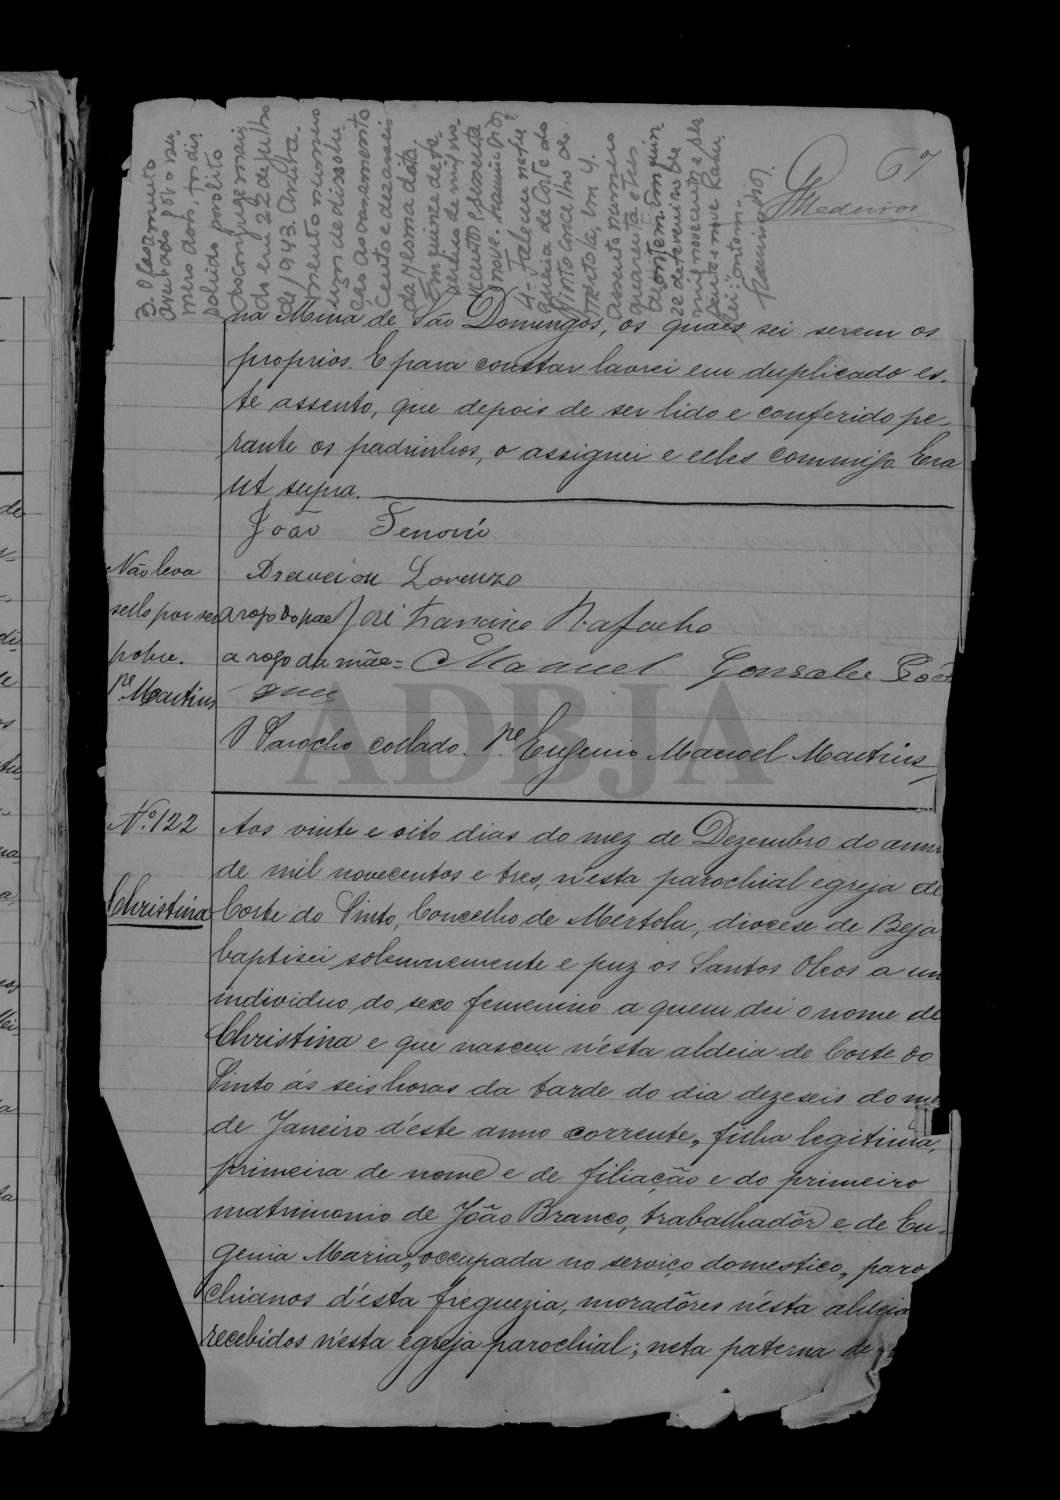 3. O casamento
averbado sob o nu-
mero dois, foi dis-
solvido por óbito
do conjuge mari-
do em 22 de julho
de 1943.
mento numero
um de dissolu-
ção ao casamento
cento e dezasseis
da mesma data.
Em quinze de fe-
vereiro de mil no-
vecentos e sessenta
e nove.
4- Faleceu na fre-
guesia de Corte do
Pinto concelho de
Mertola, em
Assento numero
quarenta e tres
de ontem. Em quin-
ze de fevereiro de
mil novecentos e ses-
senta e nove.
"ontem".
67
Medeiros
na Mina de São Domingos, os quaes sei serem os
proprios. E para constar lavrei em duplicado es-
te assento, que depois de ser lido e conferido pe-
rante os padrinhos, o assignei e elles commigo. Era
ut supra.
João
Não leva
Lorenzo
sello por ser
a rogo do pae José Francisco Rafacho
pobre.
a rogo da mãe = Manuel Gonsales
Pe Martins
O Parocho collado. Pe Eugenio Manoel Martins
N.º 122
Aos vinte e oito dias do mez de Dezembro do anno
de mil novecentos e tres, n'esta parochial egreja de
Christina
Corte do Pinto, Concelho de Mertola, diocese de Beja
baptisei solemnemente e puz os Santos Oleos a um
individuo do sexo femenino a quem dei o nome de
Christina e que nasceu n'esta aldeia de Corte do
Pinto ás seis horas da tarde do dia dezeseis do mez
de Janeiro d'este anno corrente, filha legitima,
primeira de nome e de filiação e do primeiro
matrimonio de João Branco, trabalhadôr e de Eu-
genia Maria, occupada no serviço domestico, paro
chianos d'esta freguezia, moradôres n'esta aldeia
recebidos n'esta egreja parochial; neta paterna de
ADBJA